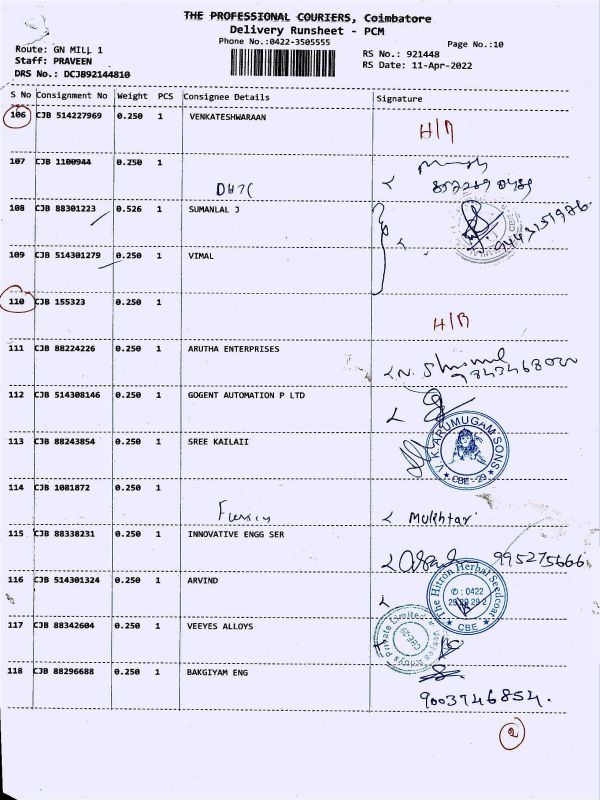 THE PROFESSIONAL COURIERS, Coimbatore
Delivery Runsheet - PCM
Phone No.:0422-3505555
Page No.:10
Route: GN MILL 1
Staff: PRAVEEN
DRS No.: DCJB92144810
RS No.: 921448
RS Date: 11-Apr-2022
S No Consignment No Weight PCS Consignee Details Signature
106 CJB 514227969 0.250 1 VENKATESHWARAAN
107 CJB 1100944 0.250 1
108 CJB 88301223 0.526 1 SUMANLAL J
109 CJB 514301279 0.250 1 VIMAL
110 CJB 155323 0.250 1
111 CJB 88224226 0.250 1 ARUTHA ENTERPRISES
112 CJB 514308146 0.250 1 GOGENT AUTOMATION P LTD
113 CJB 88243854 0.250 1 SREE KAILAII
V.K. ARUMUGAM SONS
CBE-29
114 CJB 1081872 0.250 1
Mukhtar
115 CJB 88338231 0.250 1 INNOVATIVE ENGG SER
116 CJB 514301324 0.250 1 ARVIND
The Hitron Herbal Seedcoat
✆ : 0422
CBE
117 CJB 88342604 0.250 1 VEEYES ALLOYS
118 CJB 88296688 0.250 1 BAKGIYAM ENG
9003746854.
2